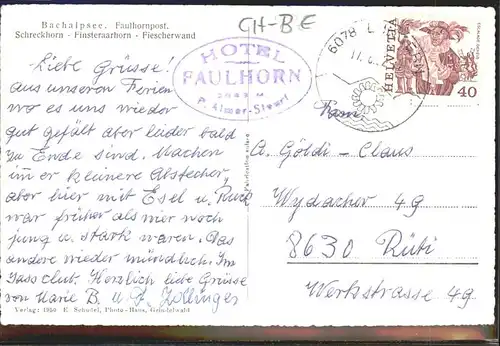 Bachalpsee. Faulhornpost.
Schreckhorn - Finsteraarhorn - Fiescherwand
CH-BE
HOTEL
FAULHORN
P. Almer-Steuri
6078 L
HELVETIA
40
Liebe Grüsse!
aus unseren Ferien
wo es uns wieder
gut gefält aber leider bald
zu Ende sind. Machen
im̄er kleinere Abstecher,
aber hier mit Esel u.
war früher als wir noch
jung u. stark waren. Das
andere wieder mündlich. Im
Jassclub. Herzlich liebe Grüsse
von Marie B. u. Zollinger
Fam.
A. Göldi - Claus
Wydacher 49
8630 Rüti
Werkstrasse 49
Verlag: 1950 E. Schudel, Photo-Haus, Grindelwald